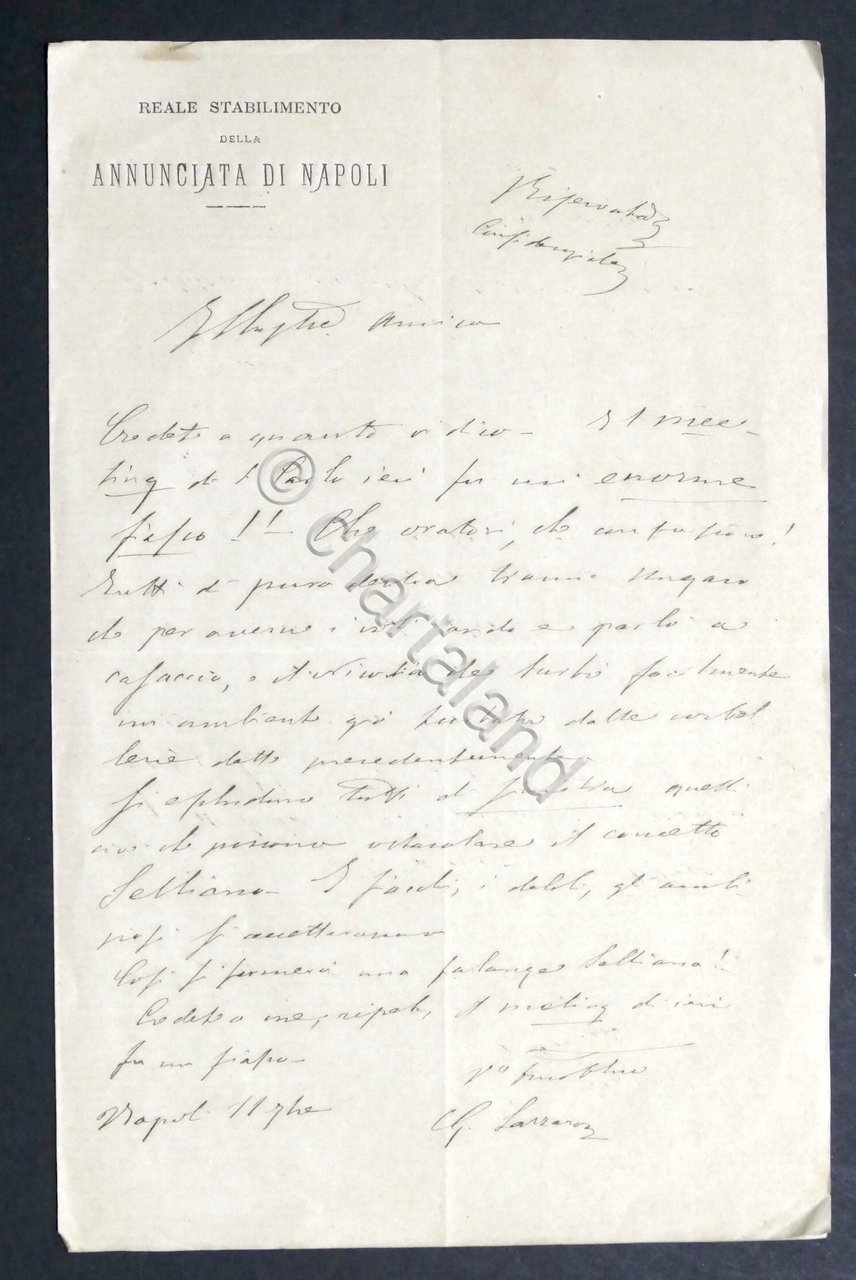 REALE STABILIMENTO
DELLA
ANNUNCIATA DI NAPOLI
Riservata
Confidenziale
Illustre amico
Credete a quanto vi dico - Il mee-
ting di S Carlo ieri fu un enorme
fiasco!! - Che oratori, che confusione!
Tutti di
che per averne i voti andò e parlò a
casaccio, e turbò facilmente
un ambiente già turbato dalle corbel
lerie dette precedentemente.
Si escludono tutti di quelli
che possono ostacolare il concetto
Selliano - I fiacchi, i deboli, gli ambi
ziosi si accetteranno
Così si formerà una falange Selliana!
Credete a me, ripeto, il meeting di ieri
fu un fiasco -
Napoli 11 9bre
G. Lazzaro
© chartaland